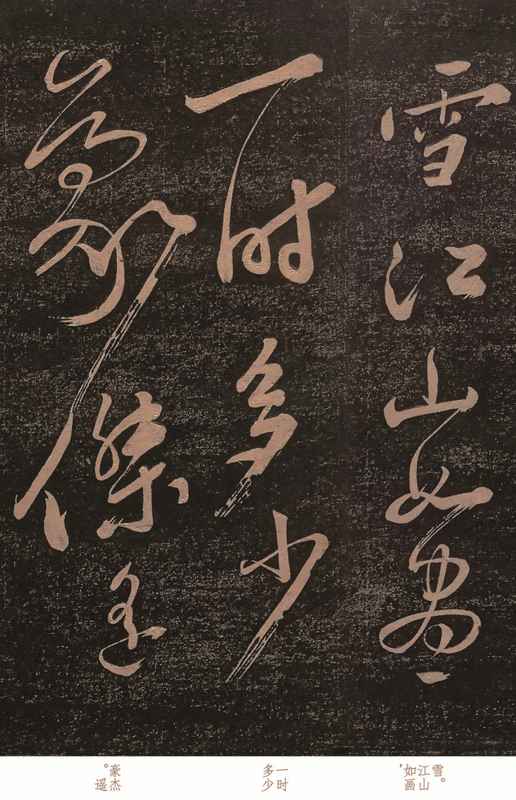 雪江山如畫
一时多少
豪傑遥
雪。江山如画，
一时多少
豪杰。遥